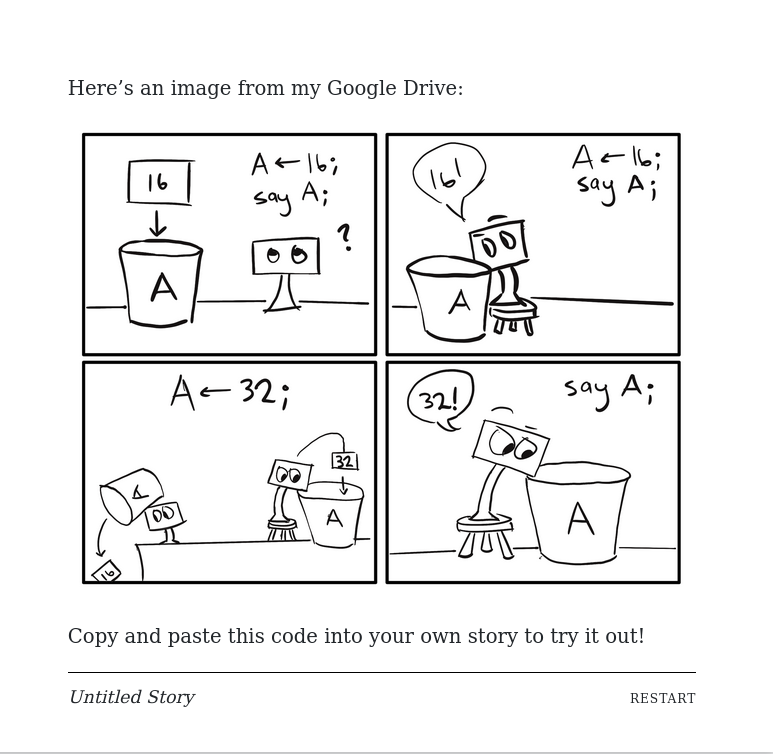 Here’s an image from my Google Drive:
16
A ← 16;
say A;
?
A
16!
A ← 16;
say A;
A
A ← 32;
A
16
32
A
32!
say A;
A
Copy and paste this code into your own story to try it out!
Untitled Story
RESTART